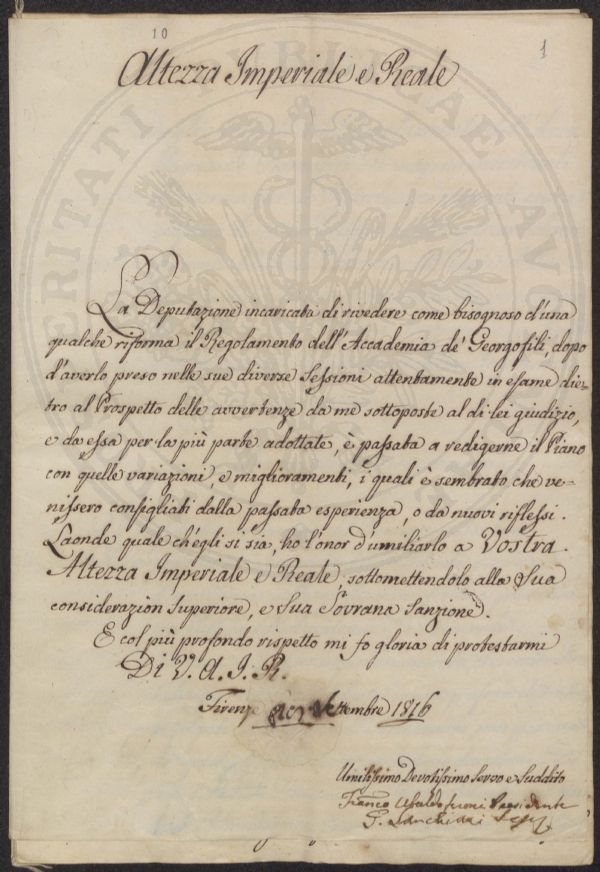 10
1
Altezza Imperiale e Reale
La Deputazione incaricata di rivedere come bisognoso d'una
qualche riforma il Regolamento dell'Accademia de' Georgofili, dopo
d'averlo preso nelle sue diverse Sessioni attentamente in esame die-
tro al Prospetto delle avvertenze da me sottoposte al di lei giudizio,
e da essa per la più parte adottate, è passata a redigerne il Piano
con quelle variazioni, e miglioramenti, i quali è sembrato che ve-
nissero consigliati dalla passata esperienza, o da nuovi riflessi.
Laonde quale ch'egli si sia, ho l'onor d'umiliarlo a Vostra
Altezza Imperiale e Reale, sottomettendolo alla Sua
considerazion Superiore, e Sua Sovrana Sanzione.
E col più profondo rispetto mi fo gloria di protestarmi
Di V. A. I. R.
Firenze Settembre 1816
Umilissimo Devotissimo Servo e Suddito
Presidente